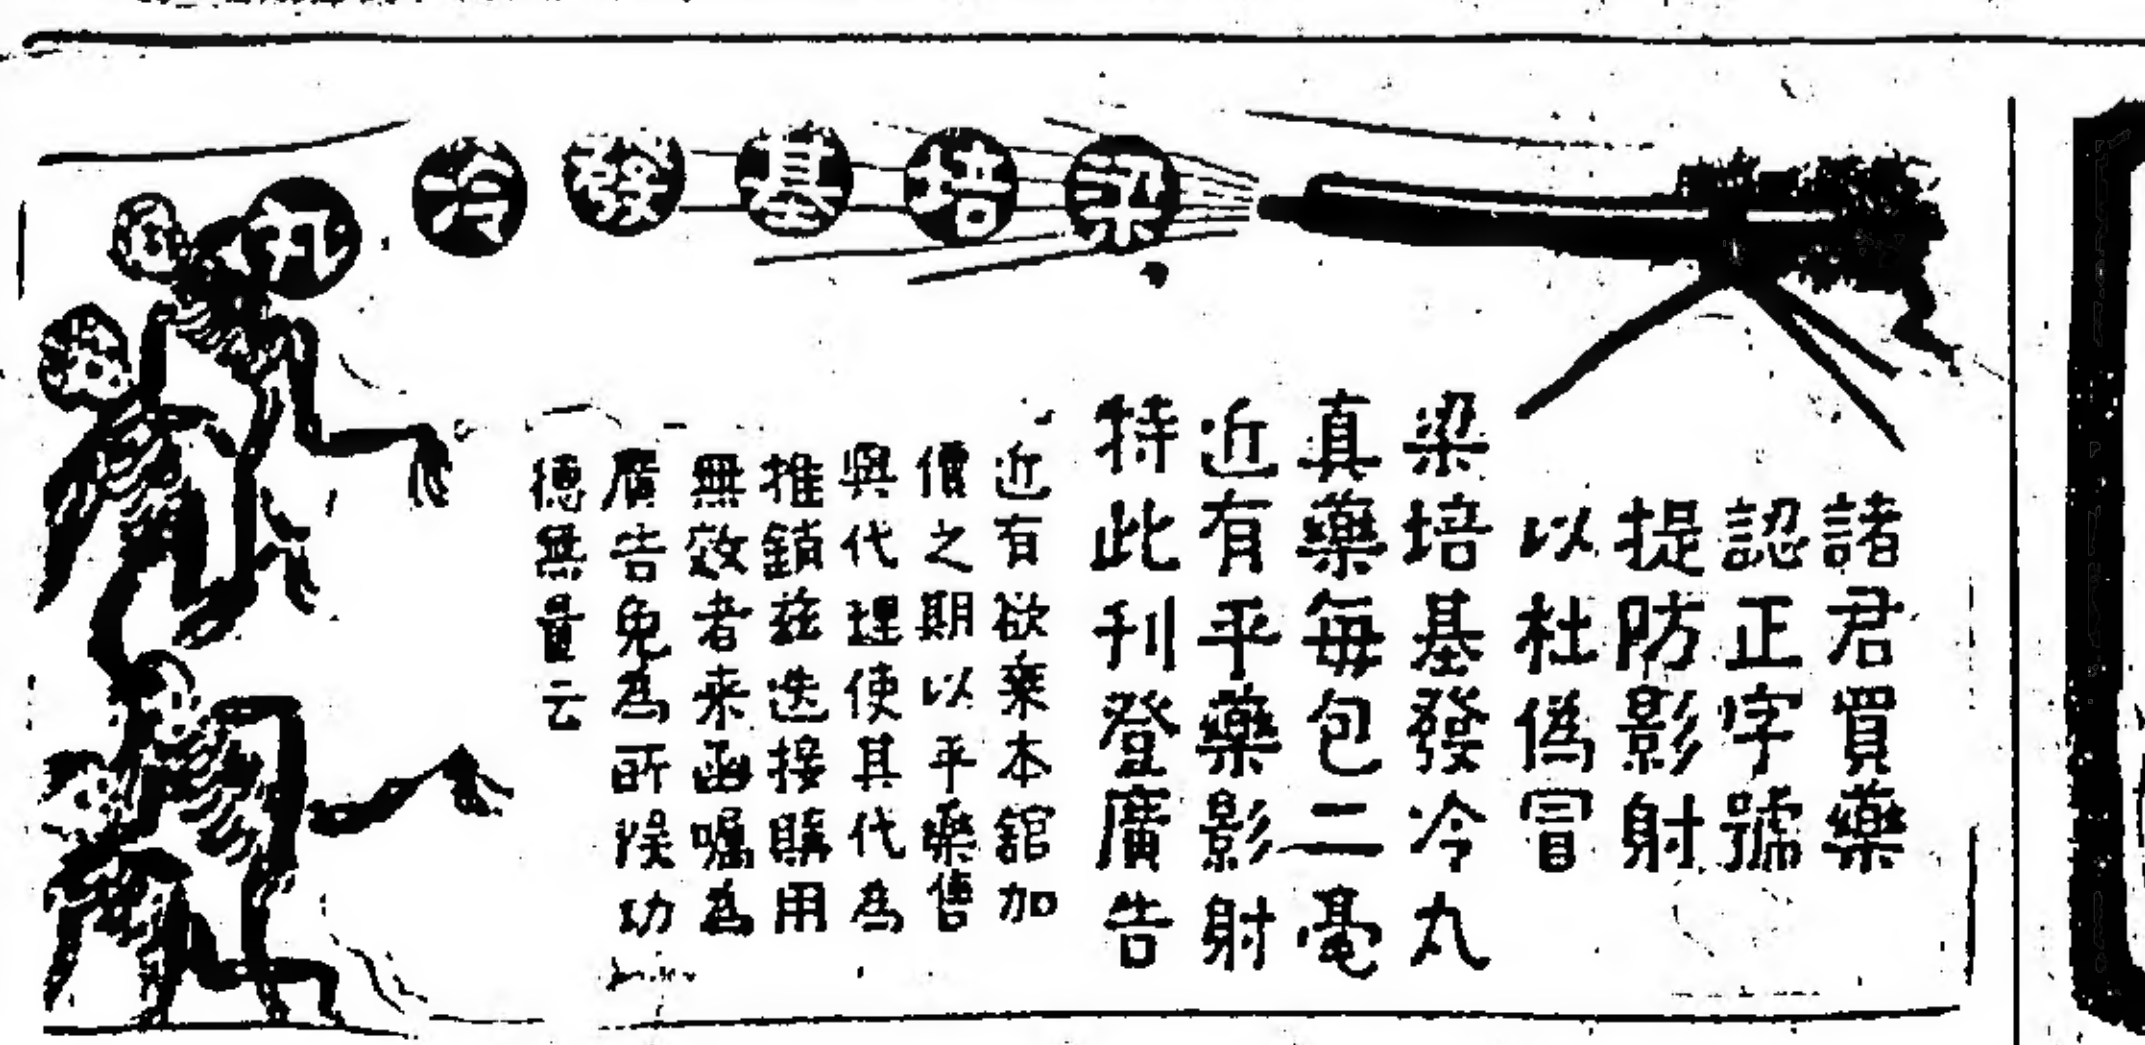 梁培基發冷丸
諸君買藥
認正字號
提防影射
以杜偽冒
梁培基發冷丸
真藥每包二毫
近有平藥影射
特此刊登廣告
近有欲乘本舘加
價之期以平藥售
與代理使其代為
推銷茲迭接購用
無效者来函囑為
廣告免為所悮功
德無量云